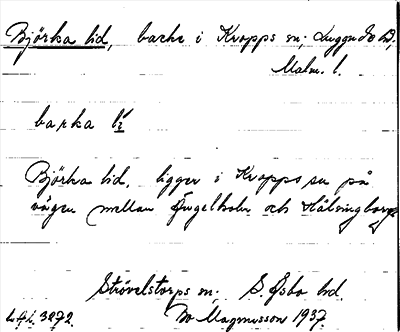 Björka lid, backe i Kropps sn; Luggude hd,
Malm. l.
barka lí
Björka lid, ligger i Kropps sn på
vägen mellan Ängelholm och Hälsingborg.
Strövelstorps sn; S. Åsbo hd.
Magnusson 1937